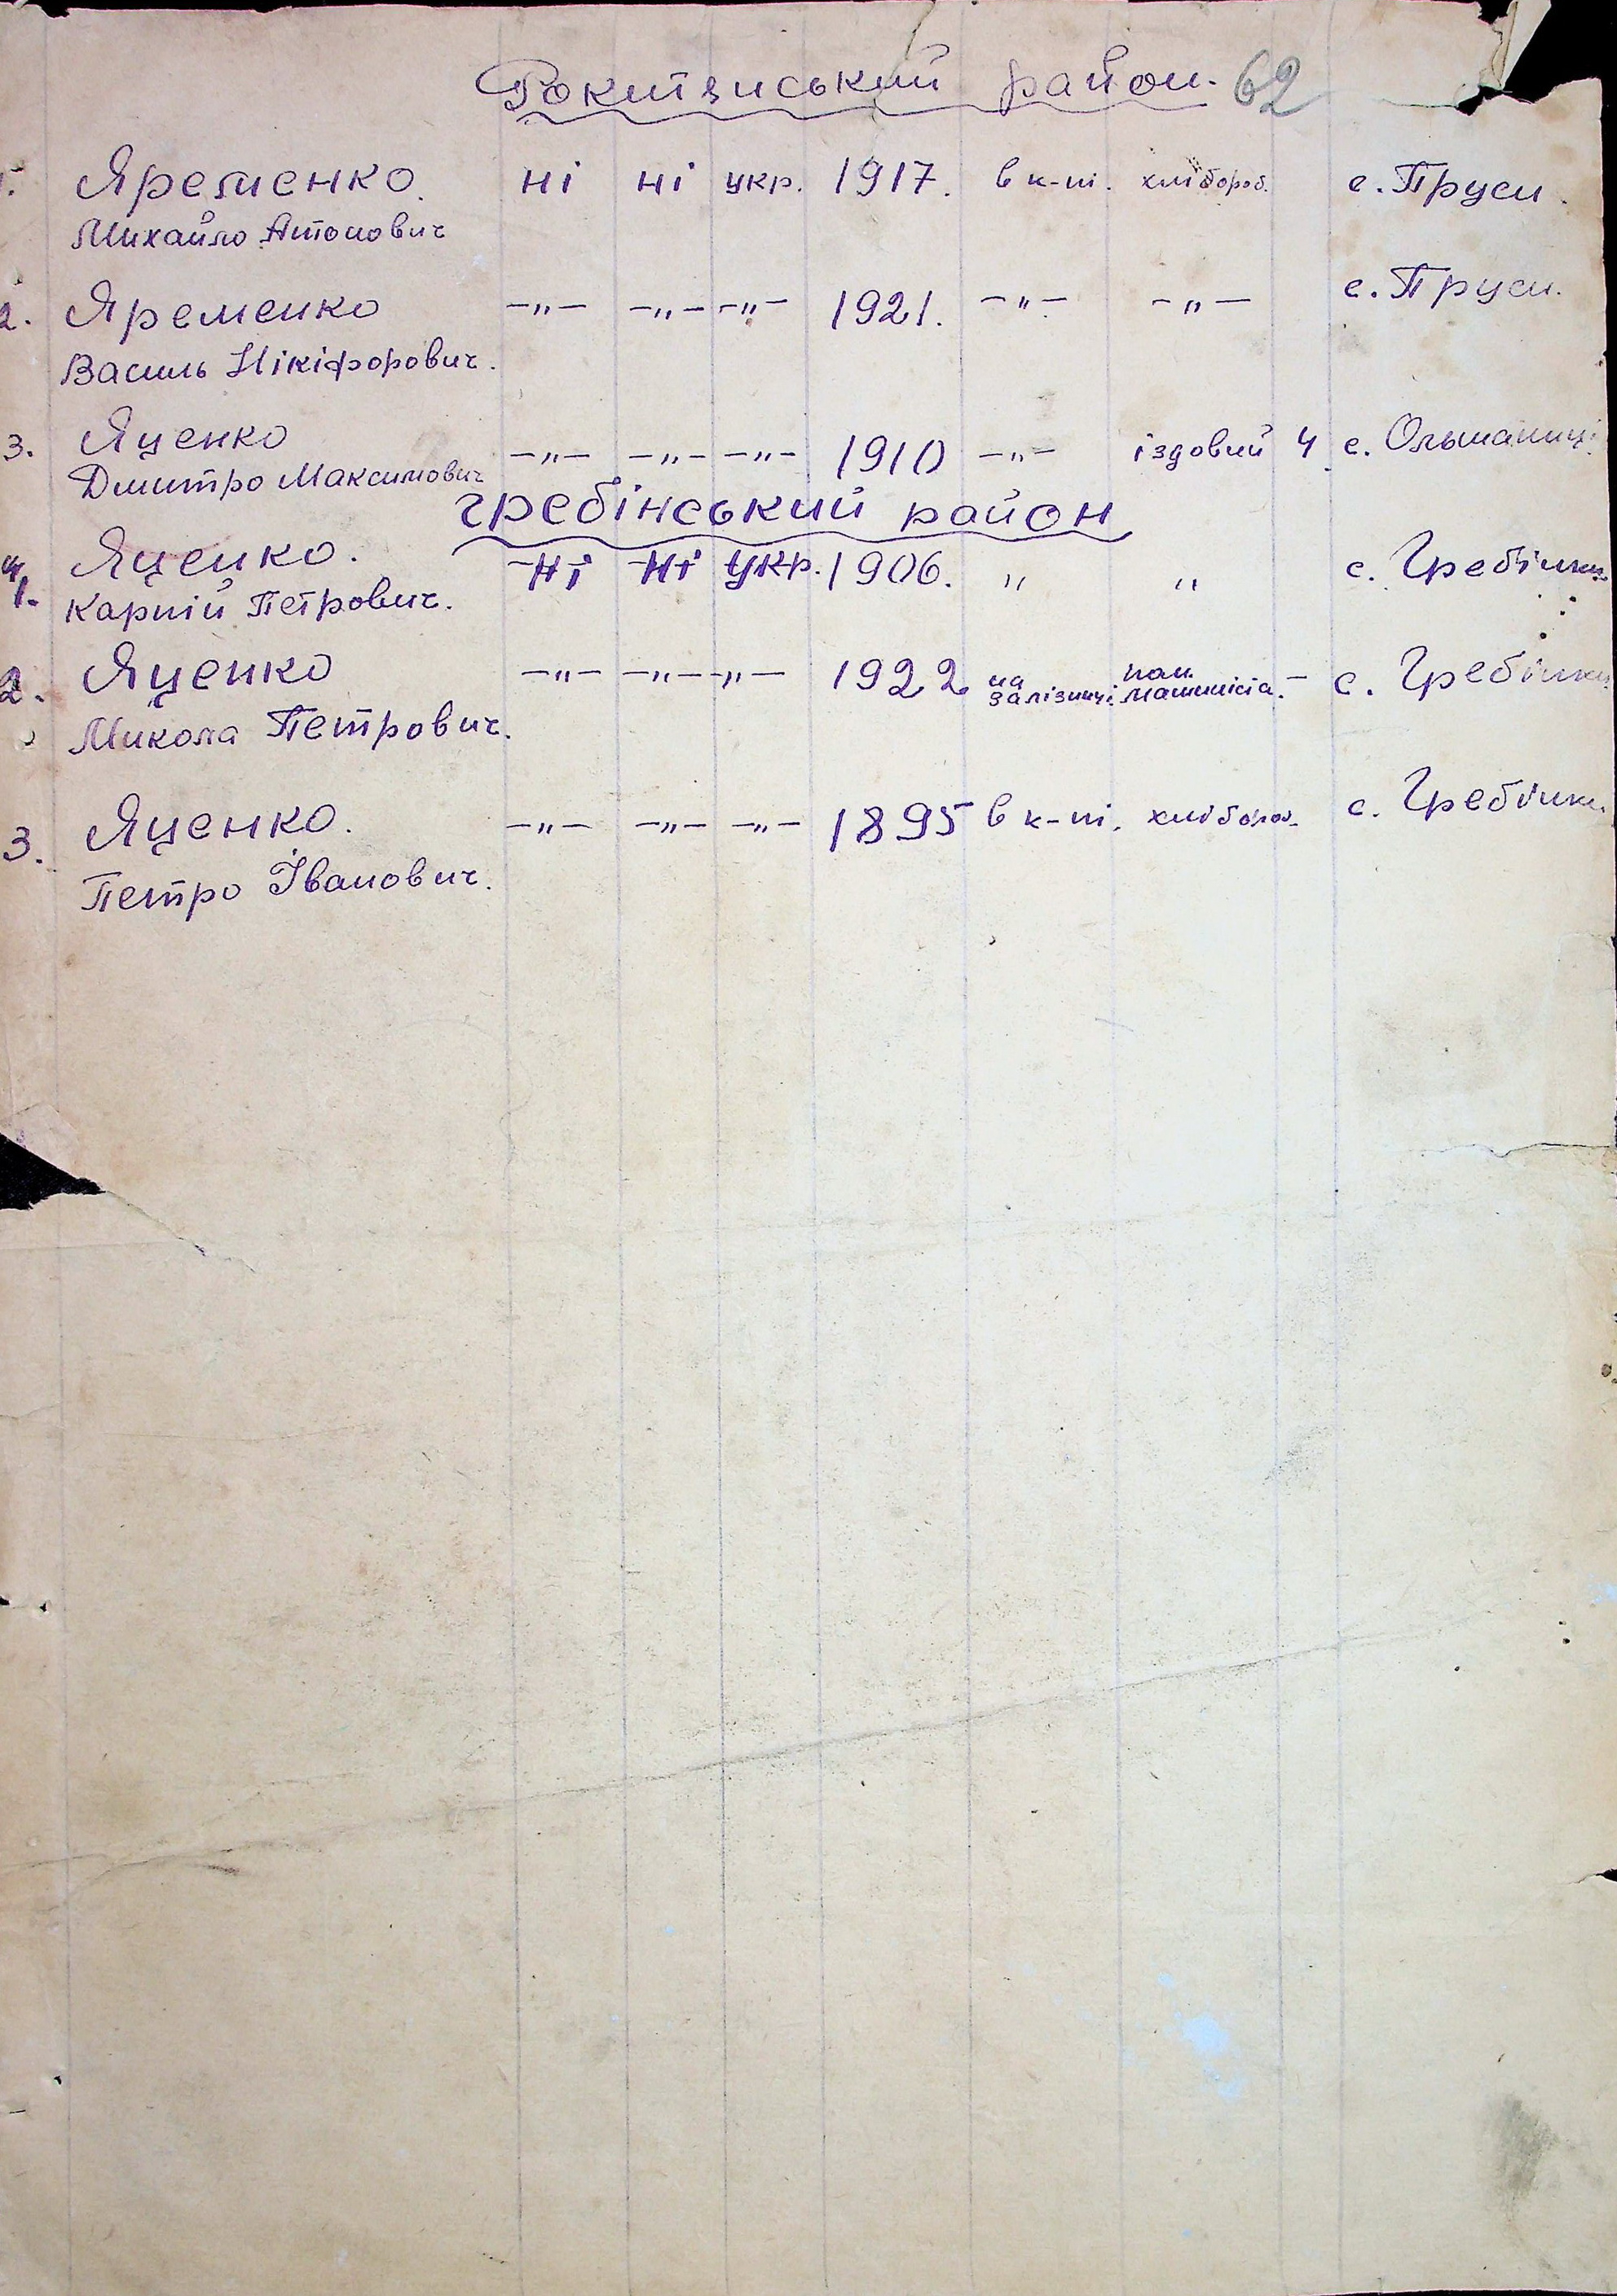 Рокитянський район. 62
1. Яременко. ні ні укр. 1917. в к-пі. хлібороб. с. Пруси.
Михайло Антонович
2. Яременко -„- -„- -„- 1921. -„- -„- с. Пруси.
Василь Нікіфорович.
3. Яценко -„- -„- -„- 1910 -„- їздовий 4 с. Ольшаниці.
Дмитро Максимович
гребінський район
1. Яценко. ні ні укр. 1906. „ „ с. Гребінки.
Карпій Петрович.
2. Яценко -„- -„- -„- 1922 на залізниці. пом. машиніста. - с. Гребінки.
Микола Петрович.
3. Яценко. -„- -„- -„- 1895 в к-пі. хлібороб. с. Гребінки
Петро Іванович.